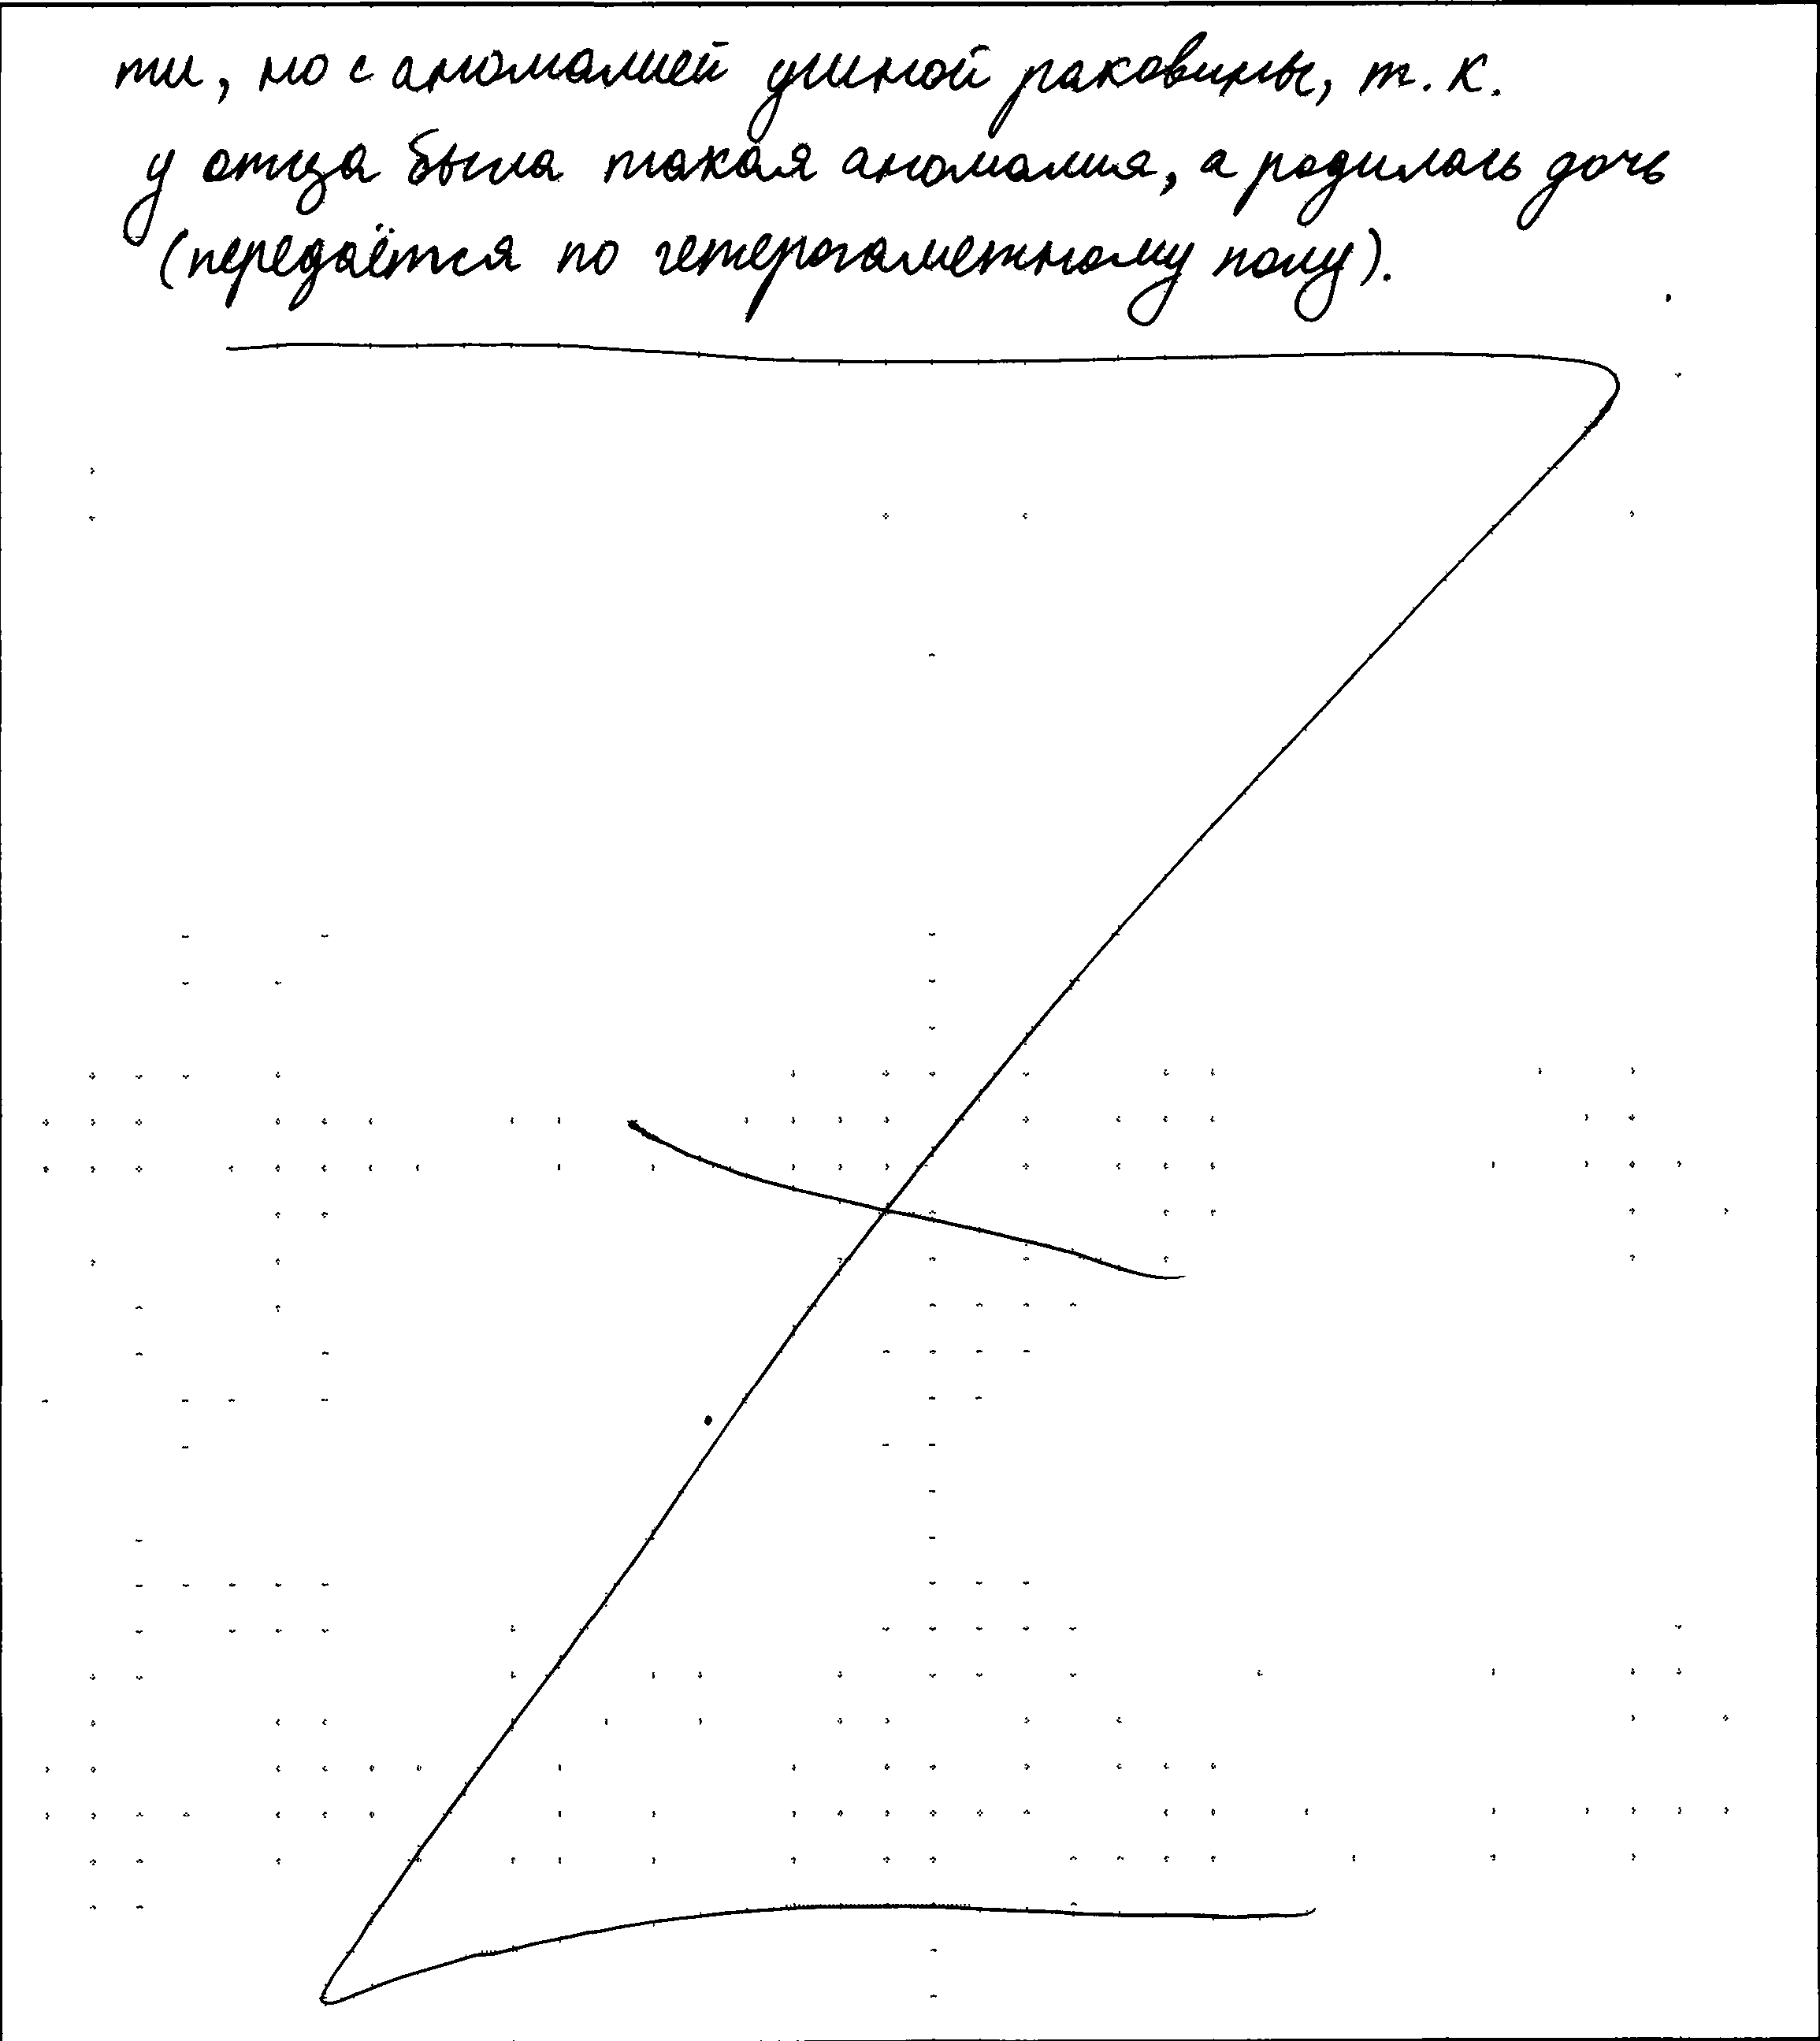 ти, но с аномалией ушной раковины, т. к.
у отца была такая аномалия, а родилась дочь
(передаётся по гетерогаметному полу).